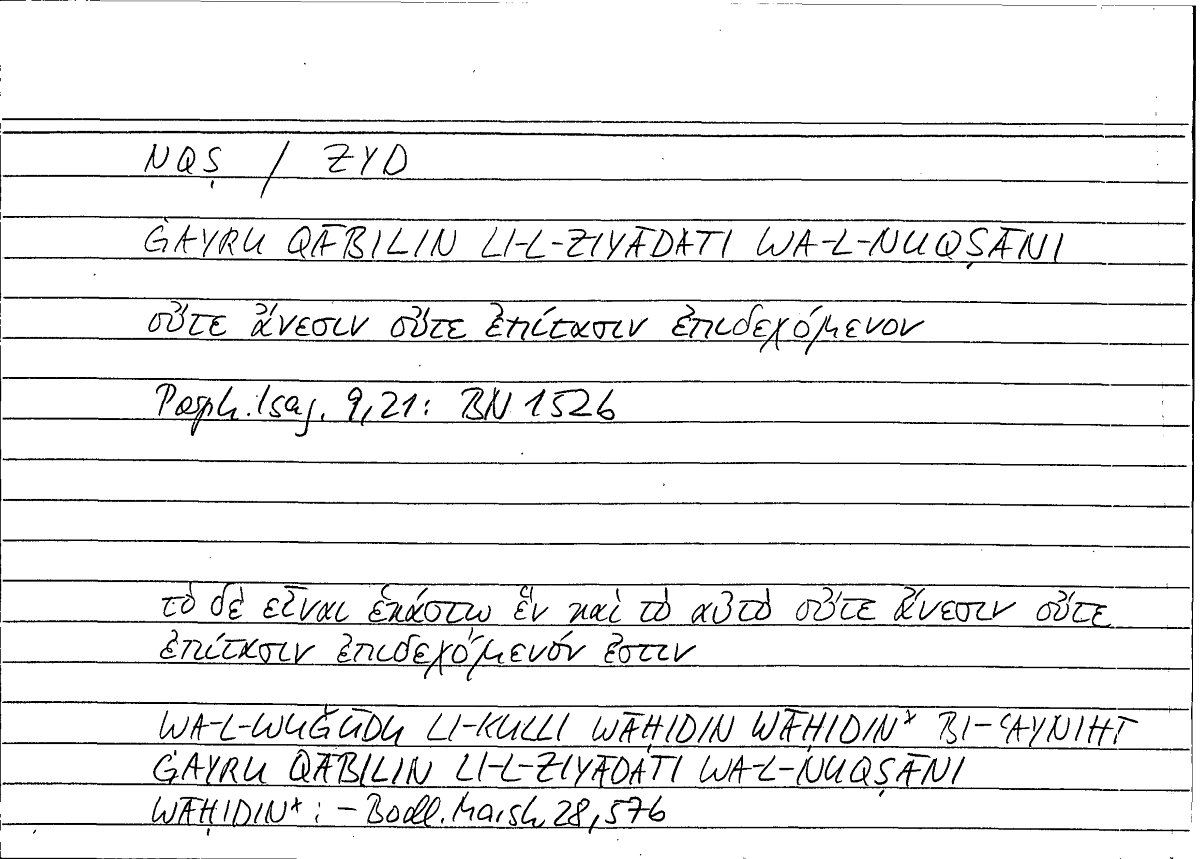 NQṢ / ZYD
ĠAYRU QĀBILIN LI-L-ZIYĀDATI WA-L-NUQṢĀNI
οὔτε ἄνεσιν οὔτε ἐπίτασιν ἐπιδεχόμενον
Porph. Isag. 9,21: BN 152b
τὸ δὲ εἶναι ἑκάστῳ ἓν καὶ τὸ αὐτὸ οὔτε ἄνεσιν οὔτε
ἐπίτασιν ἐπιδεχόμενόν ἐστιν
WA-L-WUǦŪDU LI-KULLI WĀḤIDIN WĀḤIDIN* BI-ʿAYNIHĪ
ĠAYRU QĀBILIN LI-L-ZIYĀDATI WA-L-NUQṢĀNI
WĀḤIDIN*: – Bodl. Marsh 28, 57b